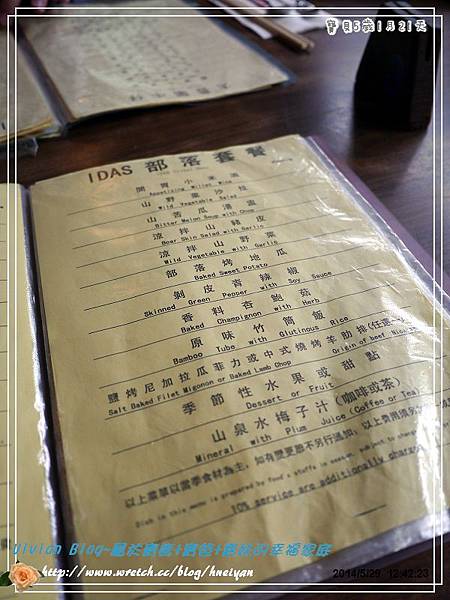 寶貝5歲1月21天
IDAS 部落套餐
開胃小米酒
Appetizing Millet Wine
山野菜沙拉
Wild Vegetable Salad
山苦瓜清湯
Bitter Melon Soup with Chop
涼拌山豬皮
Boar Skin Salad with Garlic
涼拌山野菜
Wild Vegetable with Garlic
部落烤地瓜
Baked Sweet Potato
剝皮青辣椒
Skinned Green Pepper with Soy Sauce
香料杏鮑菇
Baked Champignon with Herb
原味竹筒飯
Bamboo Tube with Glutinous Rice
鹽烤尼加拉瓜菲力或中式燒烤羊肋排(任選
Salt Baked Filet Migonon or Baked Lamb Chop Origin of beef
季節性水果或甜點
Dessert or Fruit
山泉水梅子汁(咖啡或茶)
Mineral with Plum Juice (Coffee or Tea)
以上菜單以當季食材為主,如有變更恕不另行通知,以上費用
Dish in this menu is prepared by food's staffs in season, subject to change
10% service are additionally charge
http://www.wretch.cc/blog/hneiyan
2014/5/29 12:42:23